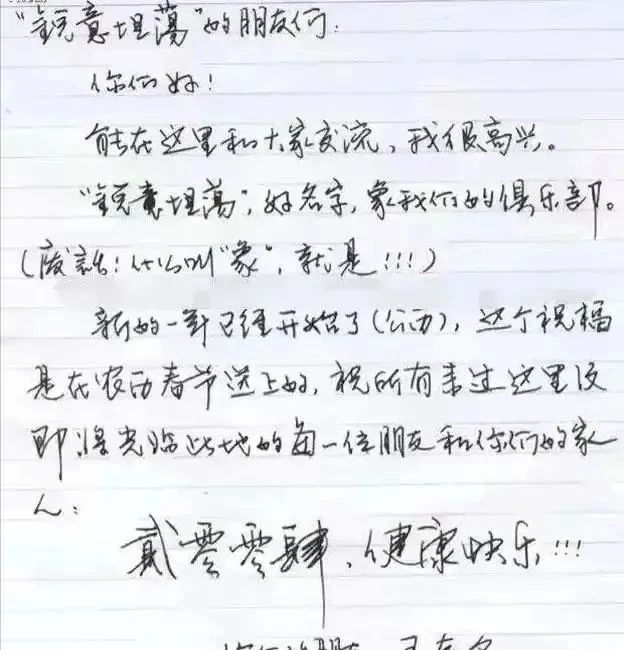 “锐意坦荡”的朋友们：
你们好！
能在这里和大家交流，我很高兴。
“锐意坦荡”，好名字，象我们的俱乐部。
（废话！什么叫“象”，就是！！！）
新的一年已经开始了（公历），这个祝福
是在农历春节送上的，祝所有来过这里及
即将光临此地的每一位朋友和你们的家
人：
贰零零肆，健康快乐！！！
你们的朋友